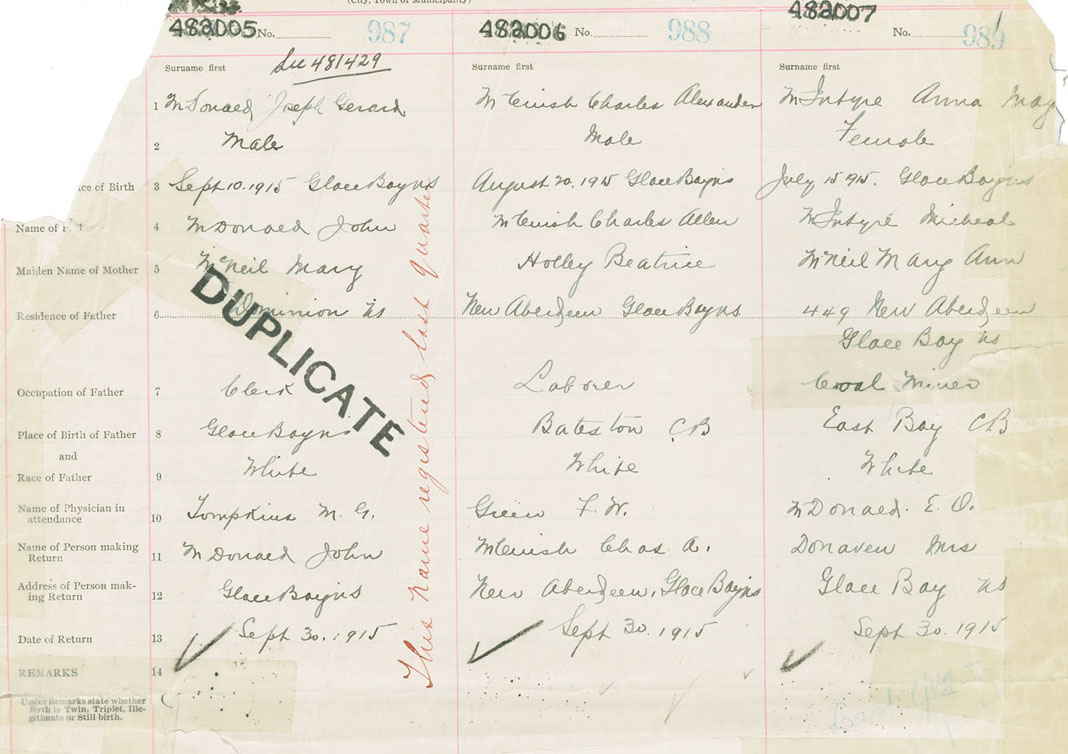 (City, Town or Municipality)
482005 No. 987 482006 No. 988 482007 No. 989
Surname first See 481429 Surname first Surname first
1 McDonald Joseph Gerard McEnish Charles Alexander McIntyre Anna May
2 Male Male Female
ace of Birth 3 Sept 10. 1915 Glace Bay NS August 20. 1915 Glace Bay NS July 15 1915. Glace Bay NS
Name of 4 McDonald John McEnish Charles Allen McIntyre Micheal
Maiden Name of Mother 5 McNeil Mary Holley Beatrice McNeil Mary Ann
Residence of Father 6 Dominion NS New Aberdeen Glace Bay NS 449 New Aberdeen
Glace Bay NS
Occupation of Father 7 Clerk Laborer Coal Miner
Place of Birth of Father 8 Glace Bay NS Bateston CB East Bay CB
and
Race of Father 9 White White White
Name of Physician in
attendance 10 Tompkins M. G. Green F. W. McDonald. E. O.
Name of Person making
Return 11 McDonald John McEnish Chas. A. Donaven Mrs
Address of Person mak-
ing Return 12 Glace Bay NS New Aberdeen, Glace Bay NS Glace Bay NS
Date of Return 13 Sept 30. 1915 Sept 30. 1915 Sept 30. 1915
REMARKS 14
Under Remarks state whether
Birth is Twin, Triplet, Ille-
gitimate or Still-birth.
DUPLICATE
This name registered last quarter